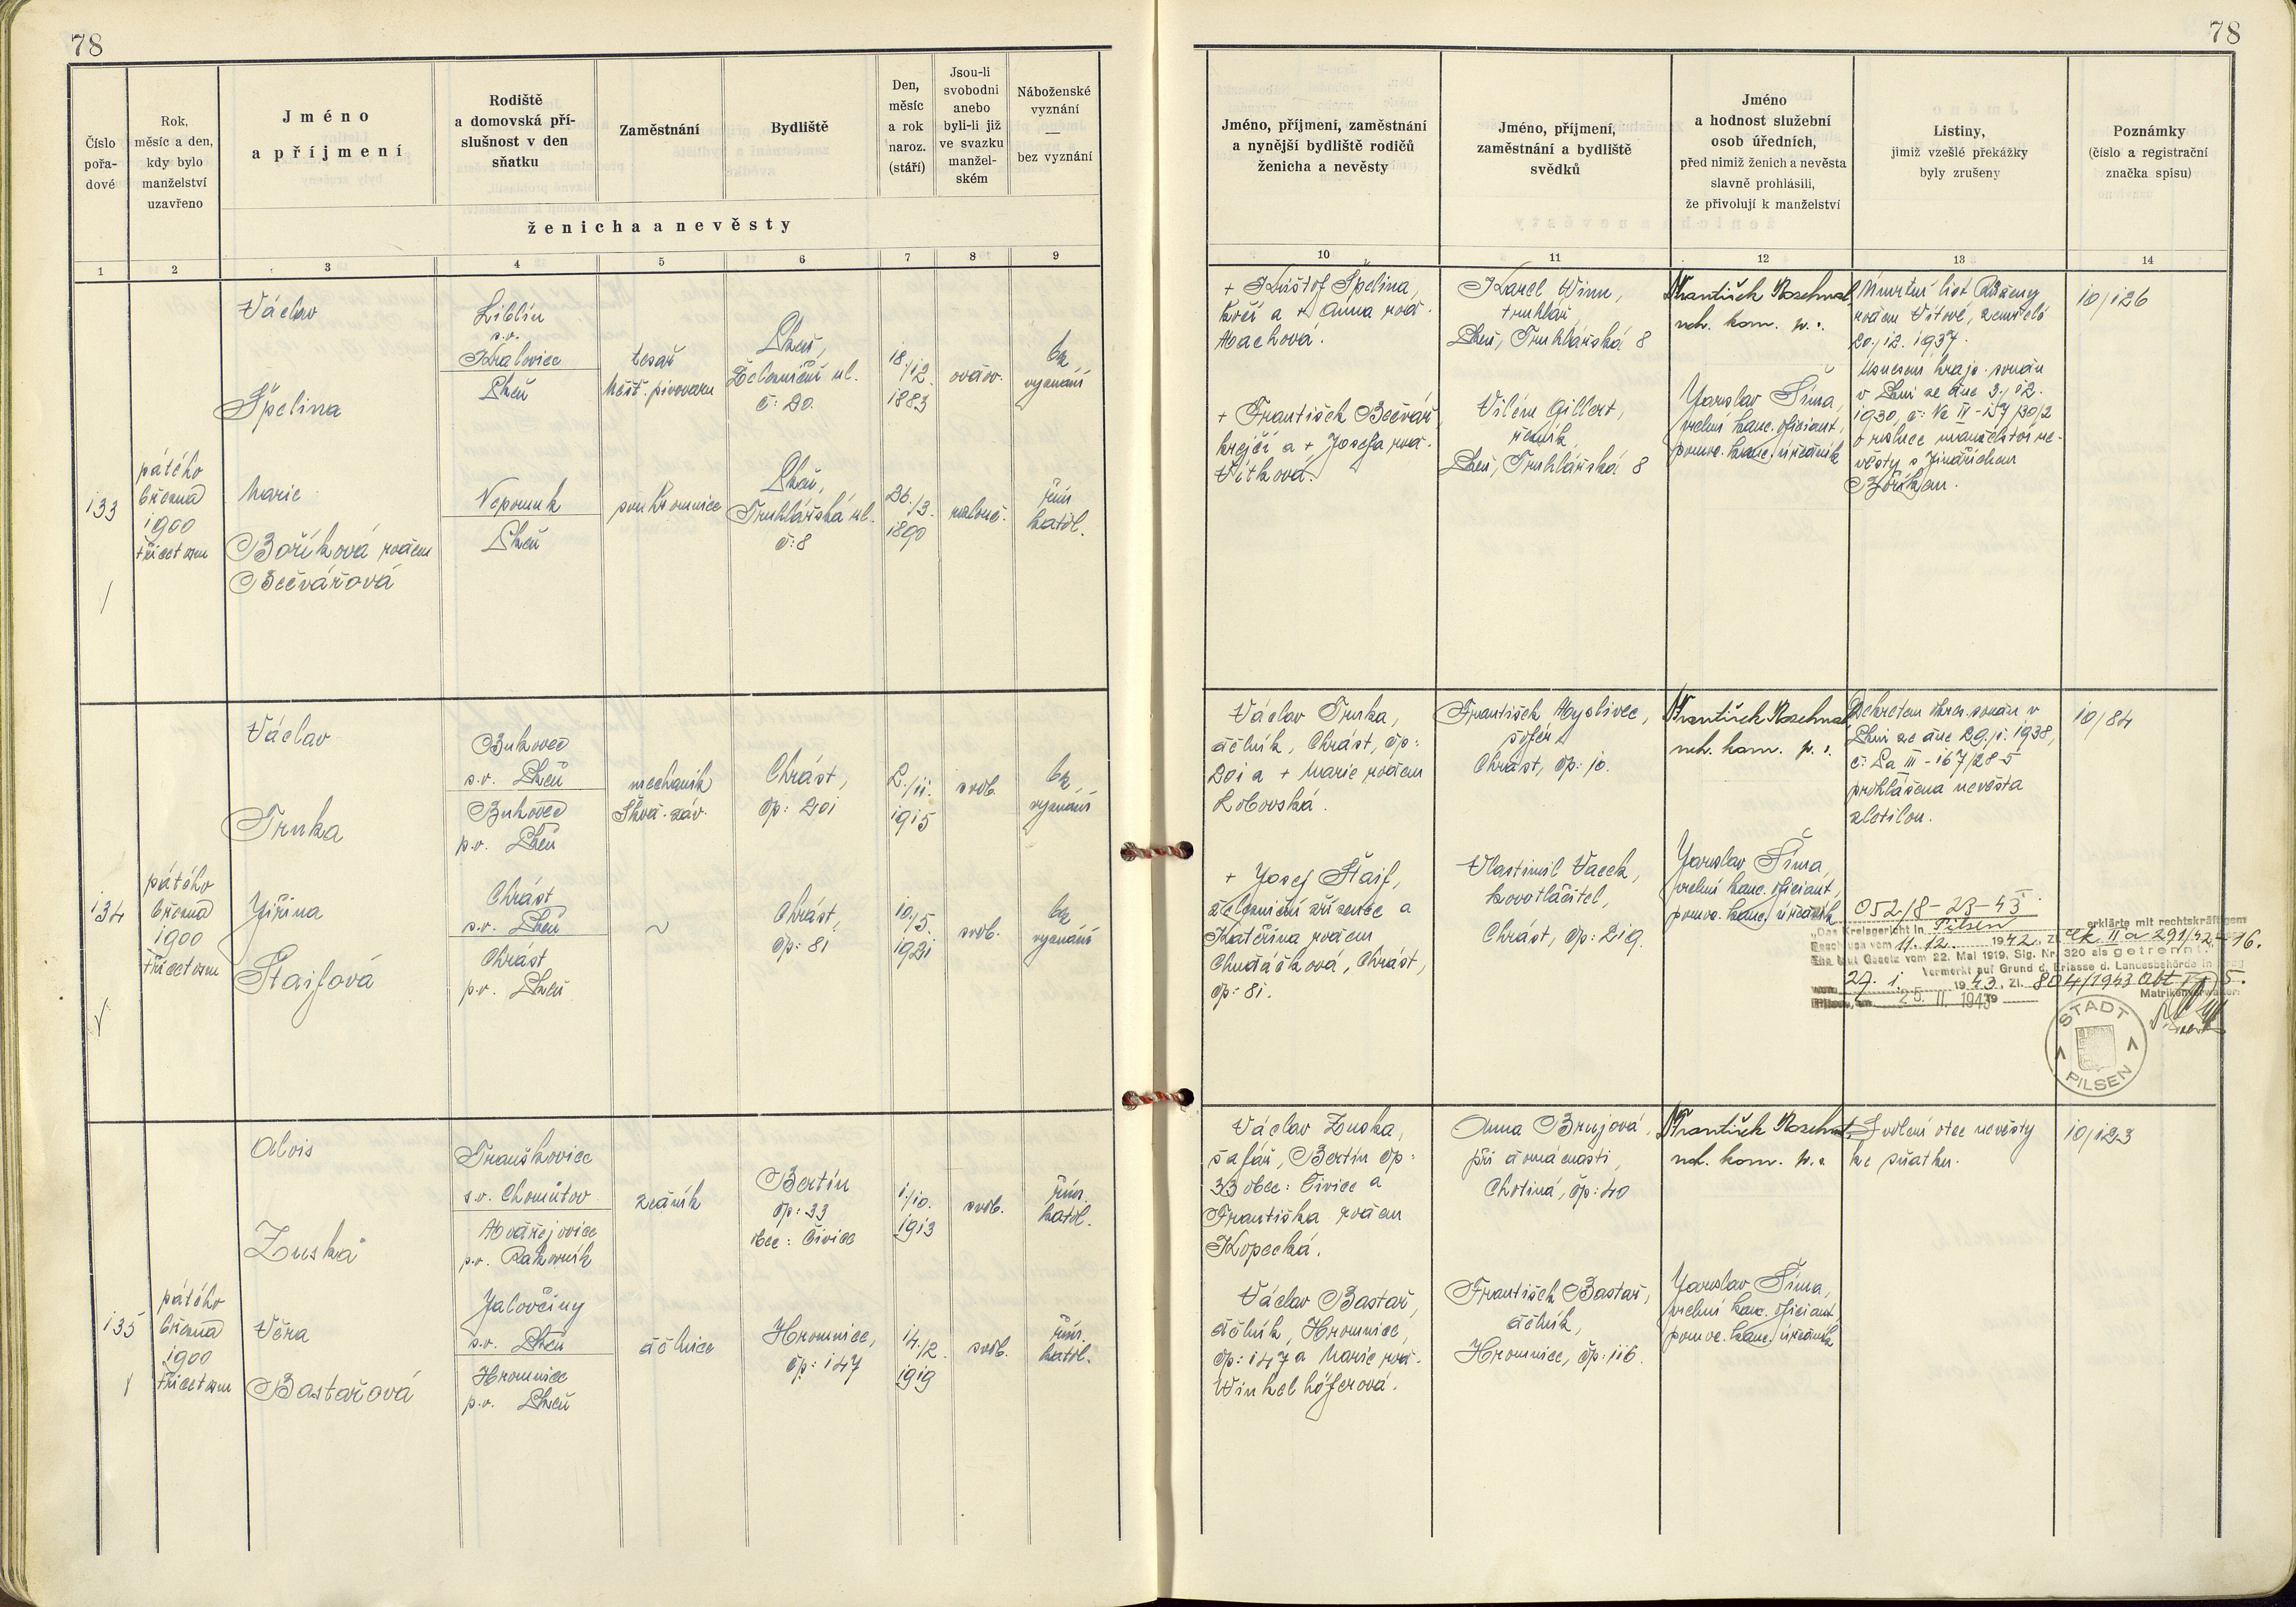 78
78
Číslo
pořa-
dové
Rok,
měsíc a den,
kdy bylo
manželství
uzavřeno
Jméno
a příjmení
Rodiště
a domovská pří-
slušnost v den
sňatku
Zaměstnání
Bydliště
Den,
měsíc
a rok
naroz.
(stáří)
Jsou-li
svobodni
anebo
byli-li již
ve svazku
manžel-
ském
Náboženské
vyznání
—
bez vyznání
ženicha a nevěsty
Jméno, příjmení, zaměstnání
a nynější bydliště rodičů
ženicha a nevěsty
Jméno, příjmení,
zaměstnání a bydliště
svědků
Jméno
a hodnost služební
osob úředních,
před nimiž ženich a nevěsta
slavně prohlásili,
že přivolují k manželství
Listiny,
jimiž vzešlé překážky
byly zrušeny
Poznámky
(číslo a registrační
značka spisu)
1 2 3 4 5 6 7 8 9 10 11 12 13 14
133
pátého
března
1900
třicet osm
Václav
Špelina
Liblín
s.o.
Kralovice
Plzeň
tesař
měšť. pivovaru
Plzeň,
Železniční ul.
č: 20.
18./12.
1883
ovdov.
bez
vyznání
Marie
Boříková rodem
Bečvářová
Nepomuk
Plzeň
soukromnice
Plzeň,
Truhlářská ul.
č: 8
26./3.
1890
rozlouč.
řím.
katol.
+ Kryštof Špelina,
a + Anna roz.
Machová.
+ František Bečvář
krejčí a + Josefa roz.
Vítková.
Karel Winn,
truhlář,
Plzeň, Truhlářská 8
Vilém Gillert,
řezník,
Plzeň, Truhlářská 8
František
nám. kom. m. p.
Jaroslav Šíma,
vrchní kanc. oficiant,
pomoc. kanc. úředník
Úmrtní list Růženy
rodem Vítové, zemřelé
20./12. 1937.
Usnesení krajs. soudu
v Plzni ze dne 3./12.
1930, č: Nc II - 157/30/2
o rozluce manželství ne-
věsty s Jindřichem
Boříkem.
10/126
134
pátého
března
1900
třicet osm
Václav
Trnka
Bukovec
s.o. Plzeň
Bukovec
p.o. Plzeň
mechanik
Škod. záv.
Chrást,
čp: 201
2./11.
1915
svob.
bez
vyznání
Jiřina
Štaifová
Chrást
s.o. Plzeň
Chrást
p.o. Plzeň
~
Chrást,
čp: 81
10./5.
1921
svob.
bez
vyznání
Václav Trnka,
dělník, Chrást, čp:
201 a + Marie rodem
Lobovská.
+ Josef Štaif,
železniční zřízenec a
Kateřina rodem
Chudáčková, Chrást,
čp: 81.
František Myslivec,
šofér,
Chrást, čp: 10.
Vlastimil Vacek,
kovotlačitel,
Chrást, čp: 219.
František
nám. kom. m. p.
Jaroslav Šíma,
vrchní kanc. oficiant,
pomoc. kanc. úředník
Dekretem okres. soudu v
Plzni ze dne 29./1. 1938,
č: La III - 167/28-5
prohlášena nevěsta
zletilou.
10/84
052/8 - 23 - 43
„Das Kreisgericht in Pilsen erklärte mit rechtskräftigem
Beschluss vom 11. 12. 1942. Zl. Ck II a 291/42-16.
Ehe laut Gesetz vom 22. Mai 1919, Sig. Nr. 320 als getrennt.“
Vermerkt auf Grund d. Erlasse d. Landesbehörde in Prag
vom 27. 1. 1943. Zl. 804/1943 Abt. 5.
Pilsen, am 25. II. 1943
Matrikenverwalter:
STADT
PILSEN
135
pátého
března
1900
třicet osm
Alois
Zuska
Trauškovice
s.o. Chomútov
p.o. Rakovník
zedník
Bertín
čp: 33
obec: Čivice
1./10.
1913
svob.
řím.
katol.
Věra
Bastařová
Jalovčiny
s.o. Plzeň
Hromnice
p.o. Plzeň
dělnice
Hromnice,
čp: 147
14./2.
1919
svob.
řím.
katol.
Václav Zuska,
šafář, Bertín čp:
33 obec: Čivice a
Františka rodem
Kopecká.
Václav Bastař,
dělník, Hromnice,
čp: 147 a Marie roz.
Winkelhöferová.
Anna Brujová,
při domácnosti,
Chotiná, čp: 40
František Bastař,
dělník,
Hromnice, čp: 116.
František
nám. kom. m. p.
Jaroslav Šíma,
vrchní kanc. oficiant,
pomoc. kanc. úředník
Svolení otce nevěsty
ke sňatku.
10/123